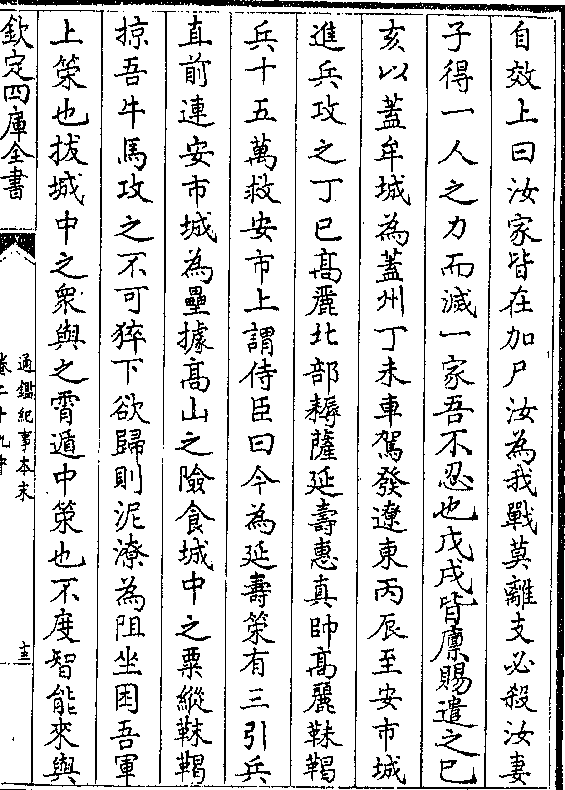 自效上曰汝家皆在加尸汝為我戰莫離支必殺汝妻
子得一人之力而滅一家吾不忍也戊戌皆廩賜遣之已
亥以蓋牟城為蓋州丁未車駕發遼東丙辰至安市城
進兵攻之丁巳髙麗北部耨薩延壽惠真帥髙麗靺鞨
兵十五萬救安市上謂侍臣曰今為延壽策有三引兵
直前連安市城為壘據髙山之險食城中之粟縱靺鞨
掠吾牛馬攻之不可猝下欲歸則泥潦為阻坐困吾軍
上策也拔城中之衆與之宵遁中策也不度智能來與
欽定四庫全書
通鑑紀事本末
卷二十九中
十三